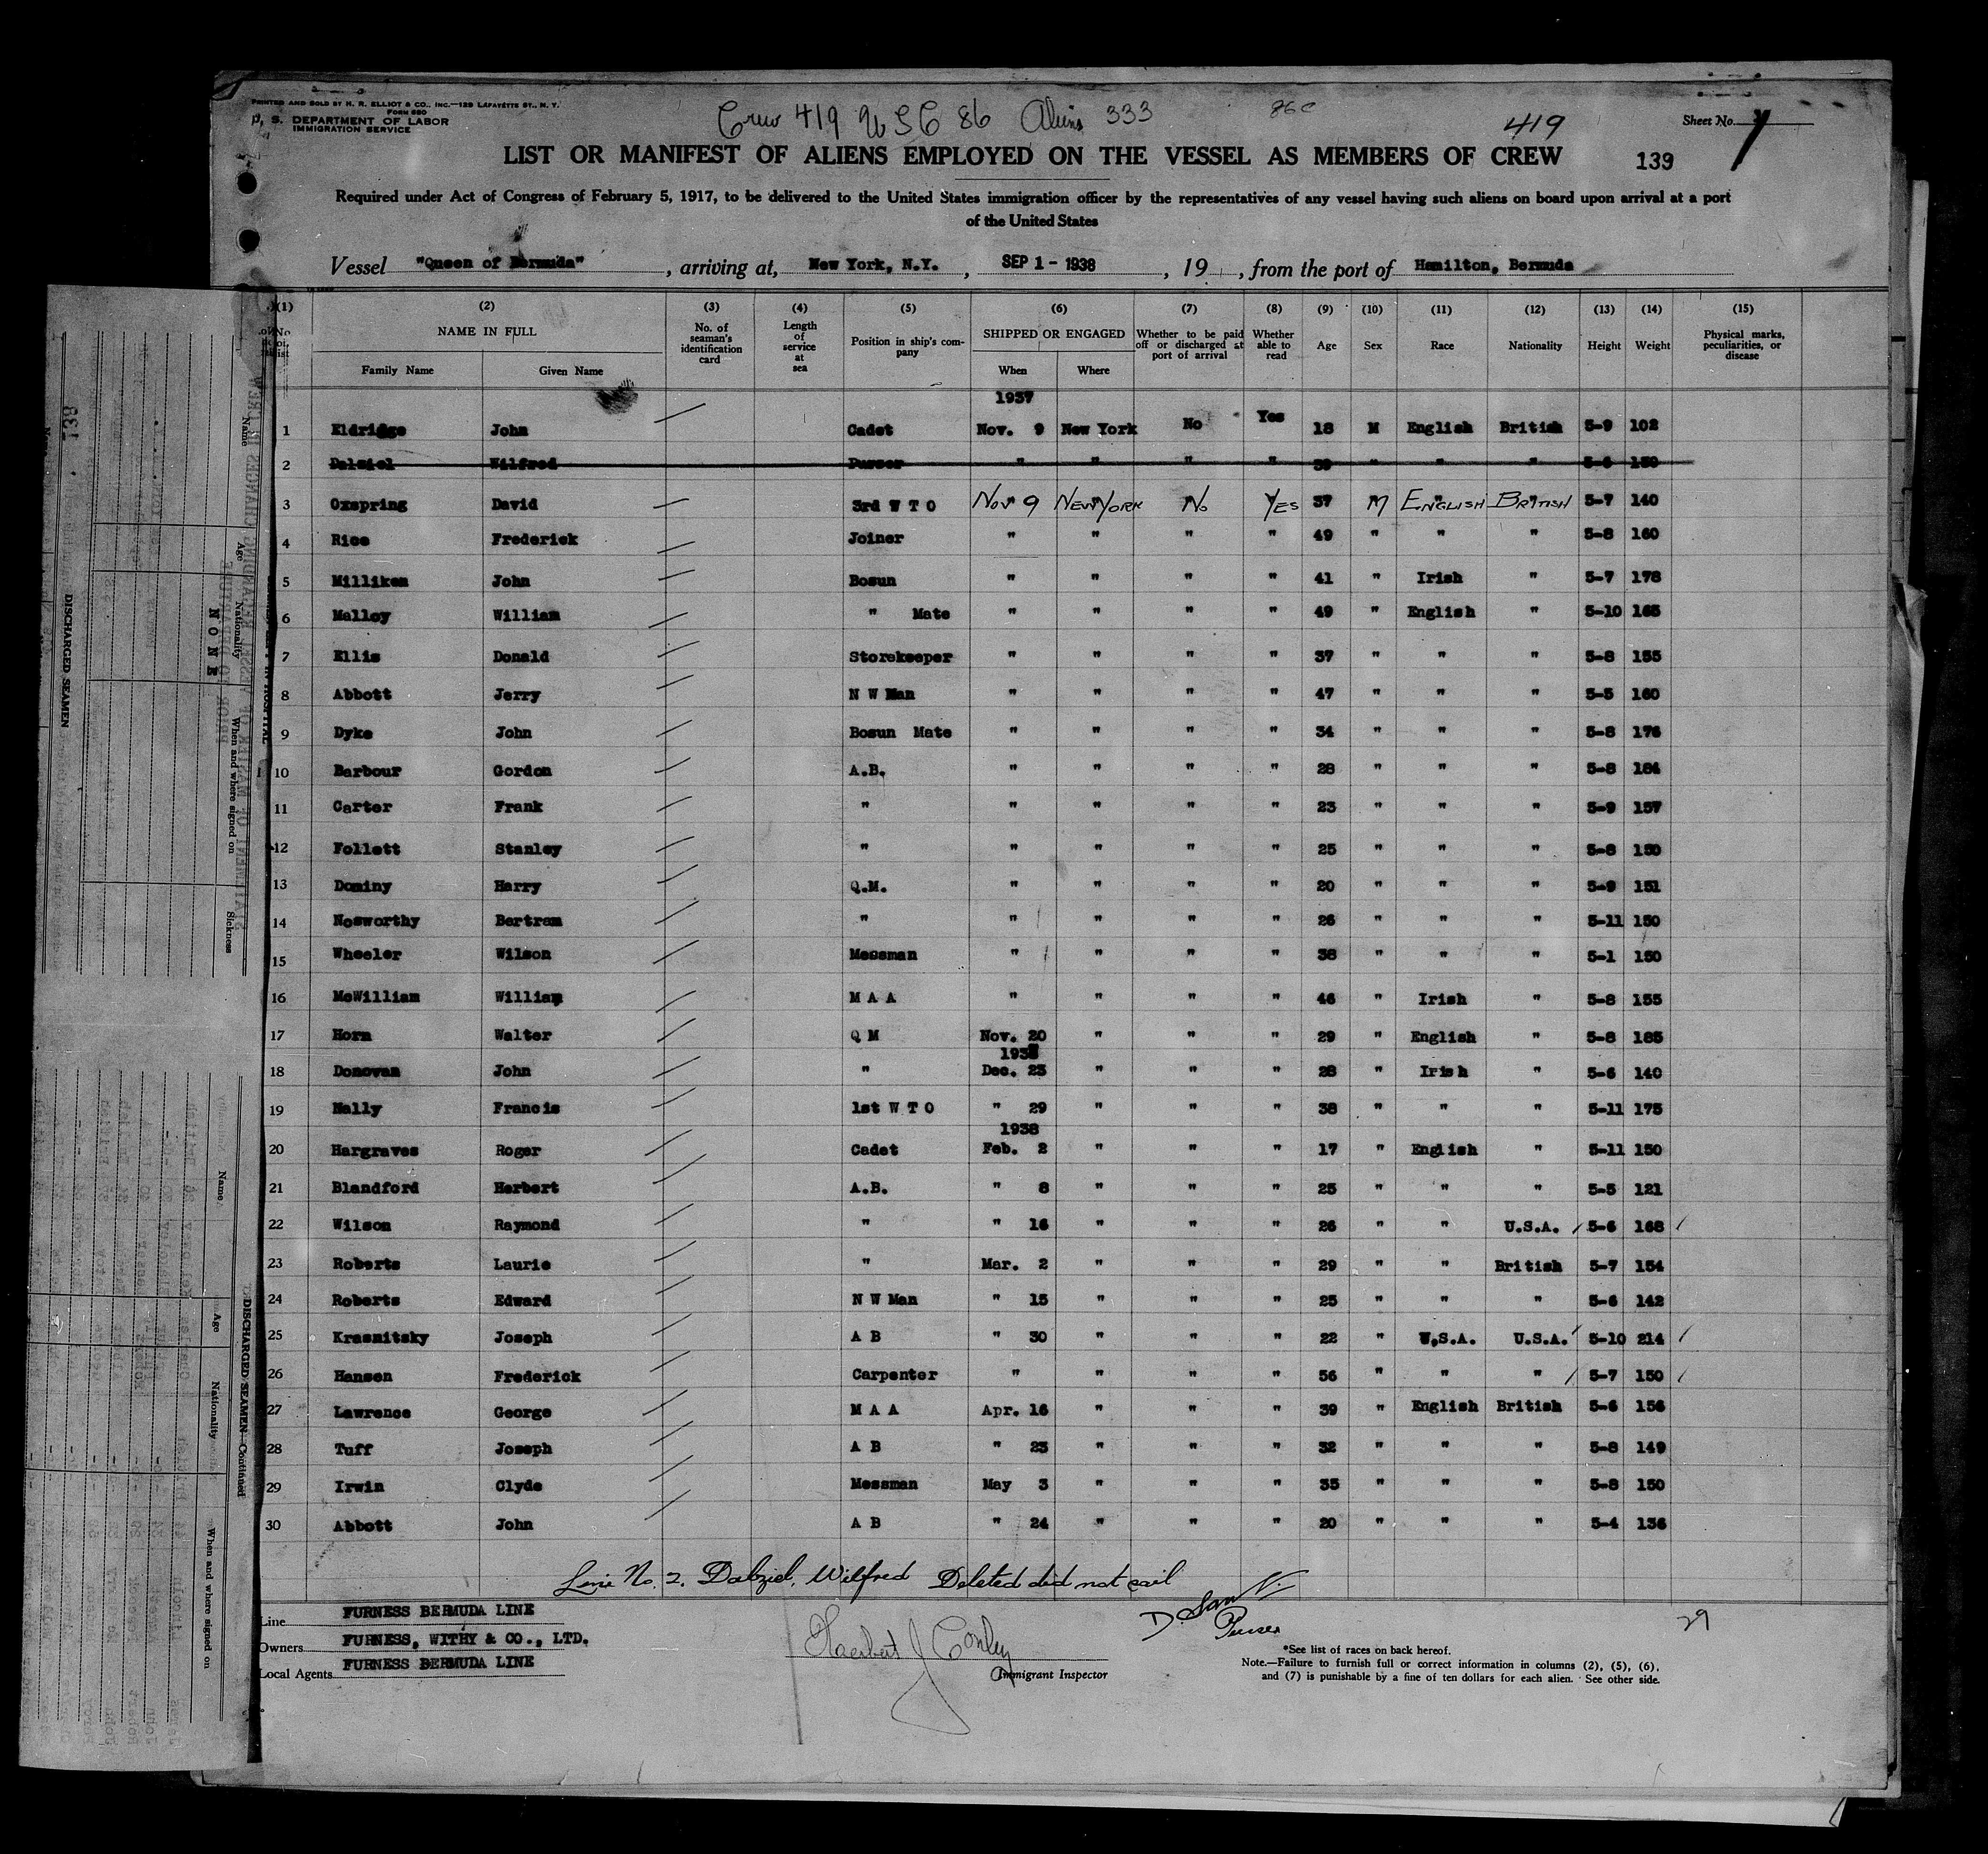 PRINTED AND SOLD BY H. R. ELLIOT & CO., INC.—129 LAFAYETTE ST., N. Y.
FORM 680
U. S. DEPARTMENT OF LABOR
IMMIGRATION SERVICE
Crew 419 USC 86 Aliens 333
86 C
419
Sheet No. 1
LIST OR MANIFEST OF ALIENS EMPLOYED ON THE VESSEL AS MEMBERS OF CREW
139
Required under Act of Congress of February 5, 1917, to be delivered to the United States immigration officer by the representatives of any vessel having such aliens on board upon arrival at a port
of the United States
Vessel "Queen of Bermuda", arriving at, New York, N.Y., SEP 1 - 1938, 19 , from the port of Hamilton, Bermuda
(1) (2) (3) (4) (5) (6) (7) (8) (9) (10) (11) (12) (13) (14) (15)
NAME IN FULL
Family Name Given Name
No. of seaman's identification card
Length of service at sea
Position in ship's company
SHIPPED OR ENGAGED
When Where
Whether to be paid off or discharged at port of arrival
Whether able to read
Age Sex Race Nationality Height Weight
Physical marks, peculiarities, or disease
1937
1 Eldridge John Cadet Nov. 9 New York No Yes 18 M English British 5-9 102
2 Dalziel Wilfred Purser " " " " 39 " " " 5-6 150
3 Oxspring David 3rd W T O Nov 9 New York No Yes 37 M English British 5-7 140
4 Rice Frederick Joiner " " " " 49 " " " 5-8 160
5 Milliken John Bosun " " " " 41 " Irish " 5-7 178
6 Malloy William " Mate " " " " 49 " English " 5-10 165
7 Ellis Donald Storekeeper " " " " 37 " " " 5-8 155
8 Abbott Jerry N W Man " " " " 47 " " " 5-5 160
9 Dyke John Bosun Mate " " " " 34 " " " 5-8 176
10 Barbour Gordon A.B. " " " " 28 " " " 5-8 184
11 Carter Frank " " " " " 23 " " " 5-9 157
12 Follett Stanley " " " " " 25 " " " 5-8 150
13 Dominy Harry Q.M. " " " " 20 " " " 5-9 151
14 Nosworthy Bertram " " " " " 26 " " " 5-11 150
15 Wheeler Wilson Messman " " " " 38 " " " 5-1 150
16 McWilliam William M A A " " " " 46 " Irish " 5-8 155
17 Horn Walter Q M Nov. 20 " " " 29 " English " 5-8 185
18 Donovan John " Dec. 23 " " " 28 " Irish " 5-6 140
19 Nally Francis 1st W T O " 29 " " " 38 " " " 5-11 175
1938
20 Hargraves Roger Cadet Feb. 2 " " " 17 " English " 5-11 150
21 Blandford Herbert A.B. " 8 " " " 25 " " " 5-5 121
22 Wilson Raymond " " 16 " " " 26 " " U.S.A. 5-6 168
23 Roberts Laurie " Mar. 2 " " " 29 " " British 5-7 154
24 Roberts Edward N W Man " 15 " " " 25 " " " 5-6 142
25 Krasnitsky Joseph A B " 30 " " " 22 " U.S.A. U.S.A. 5-10 214
26 Hansen Frederick Carpenter " " " " 56 " " " 5-7 150
27 Lawrence George M A A Apr. 16 " " " 39 " English British 5-6 156
28 Tuff Joseph A B " 23 " " " 32 " " " 5-8 149
29 Irwin Clyde Messman May 3 " " " 35 " " " 5-8 150
30 Abbott John A B " 24 " " " 20 " " " 5-4 136
Line No. 2. Dalziel, Wilfred Deleted did not sail
Purser
29
Line FURNESS BERMUDA LINE
Owners FURNESS, WITHY & CO., LTD.
Local Agents FURNESS BERMUDA LINE
Herbert J Conley
Immigrant Inspector
*See list of races on back hereof.
Note.—Failure to furnish full or correct information in columns (2), (5), (6),
and (7) is punishable by a fine of ten dollars for each alien. See other side.
DISCHARGED SEAMEN
Name
Age
Nationality
When and where signed on
Sickness
NONE
DISCHARGED SEAMEN—Continued
Name
Age
Nationality
When and where signed on